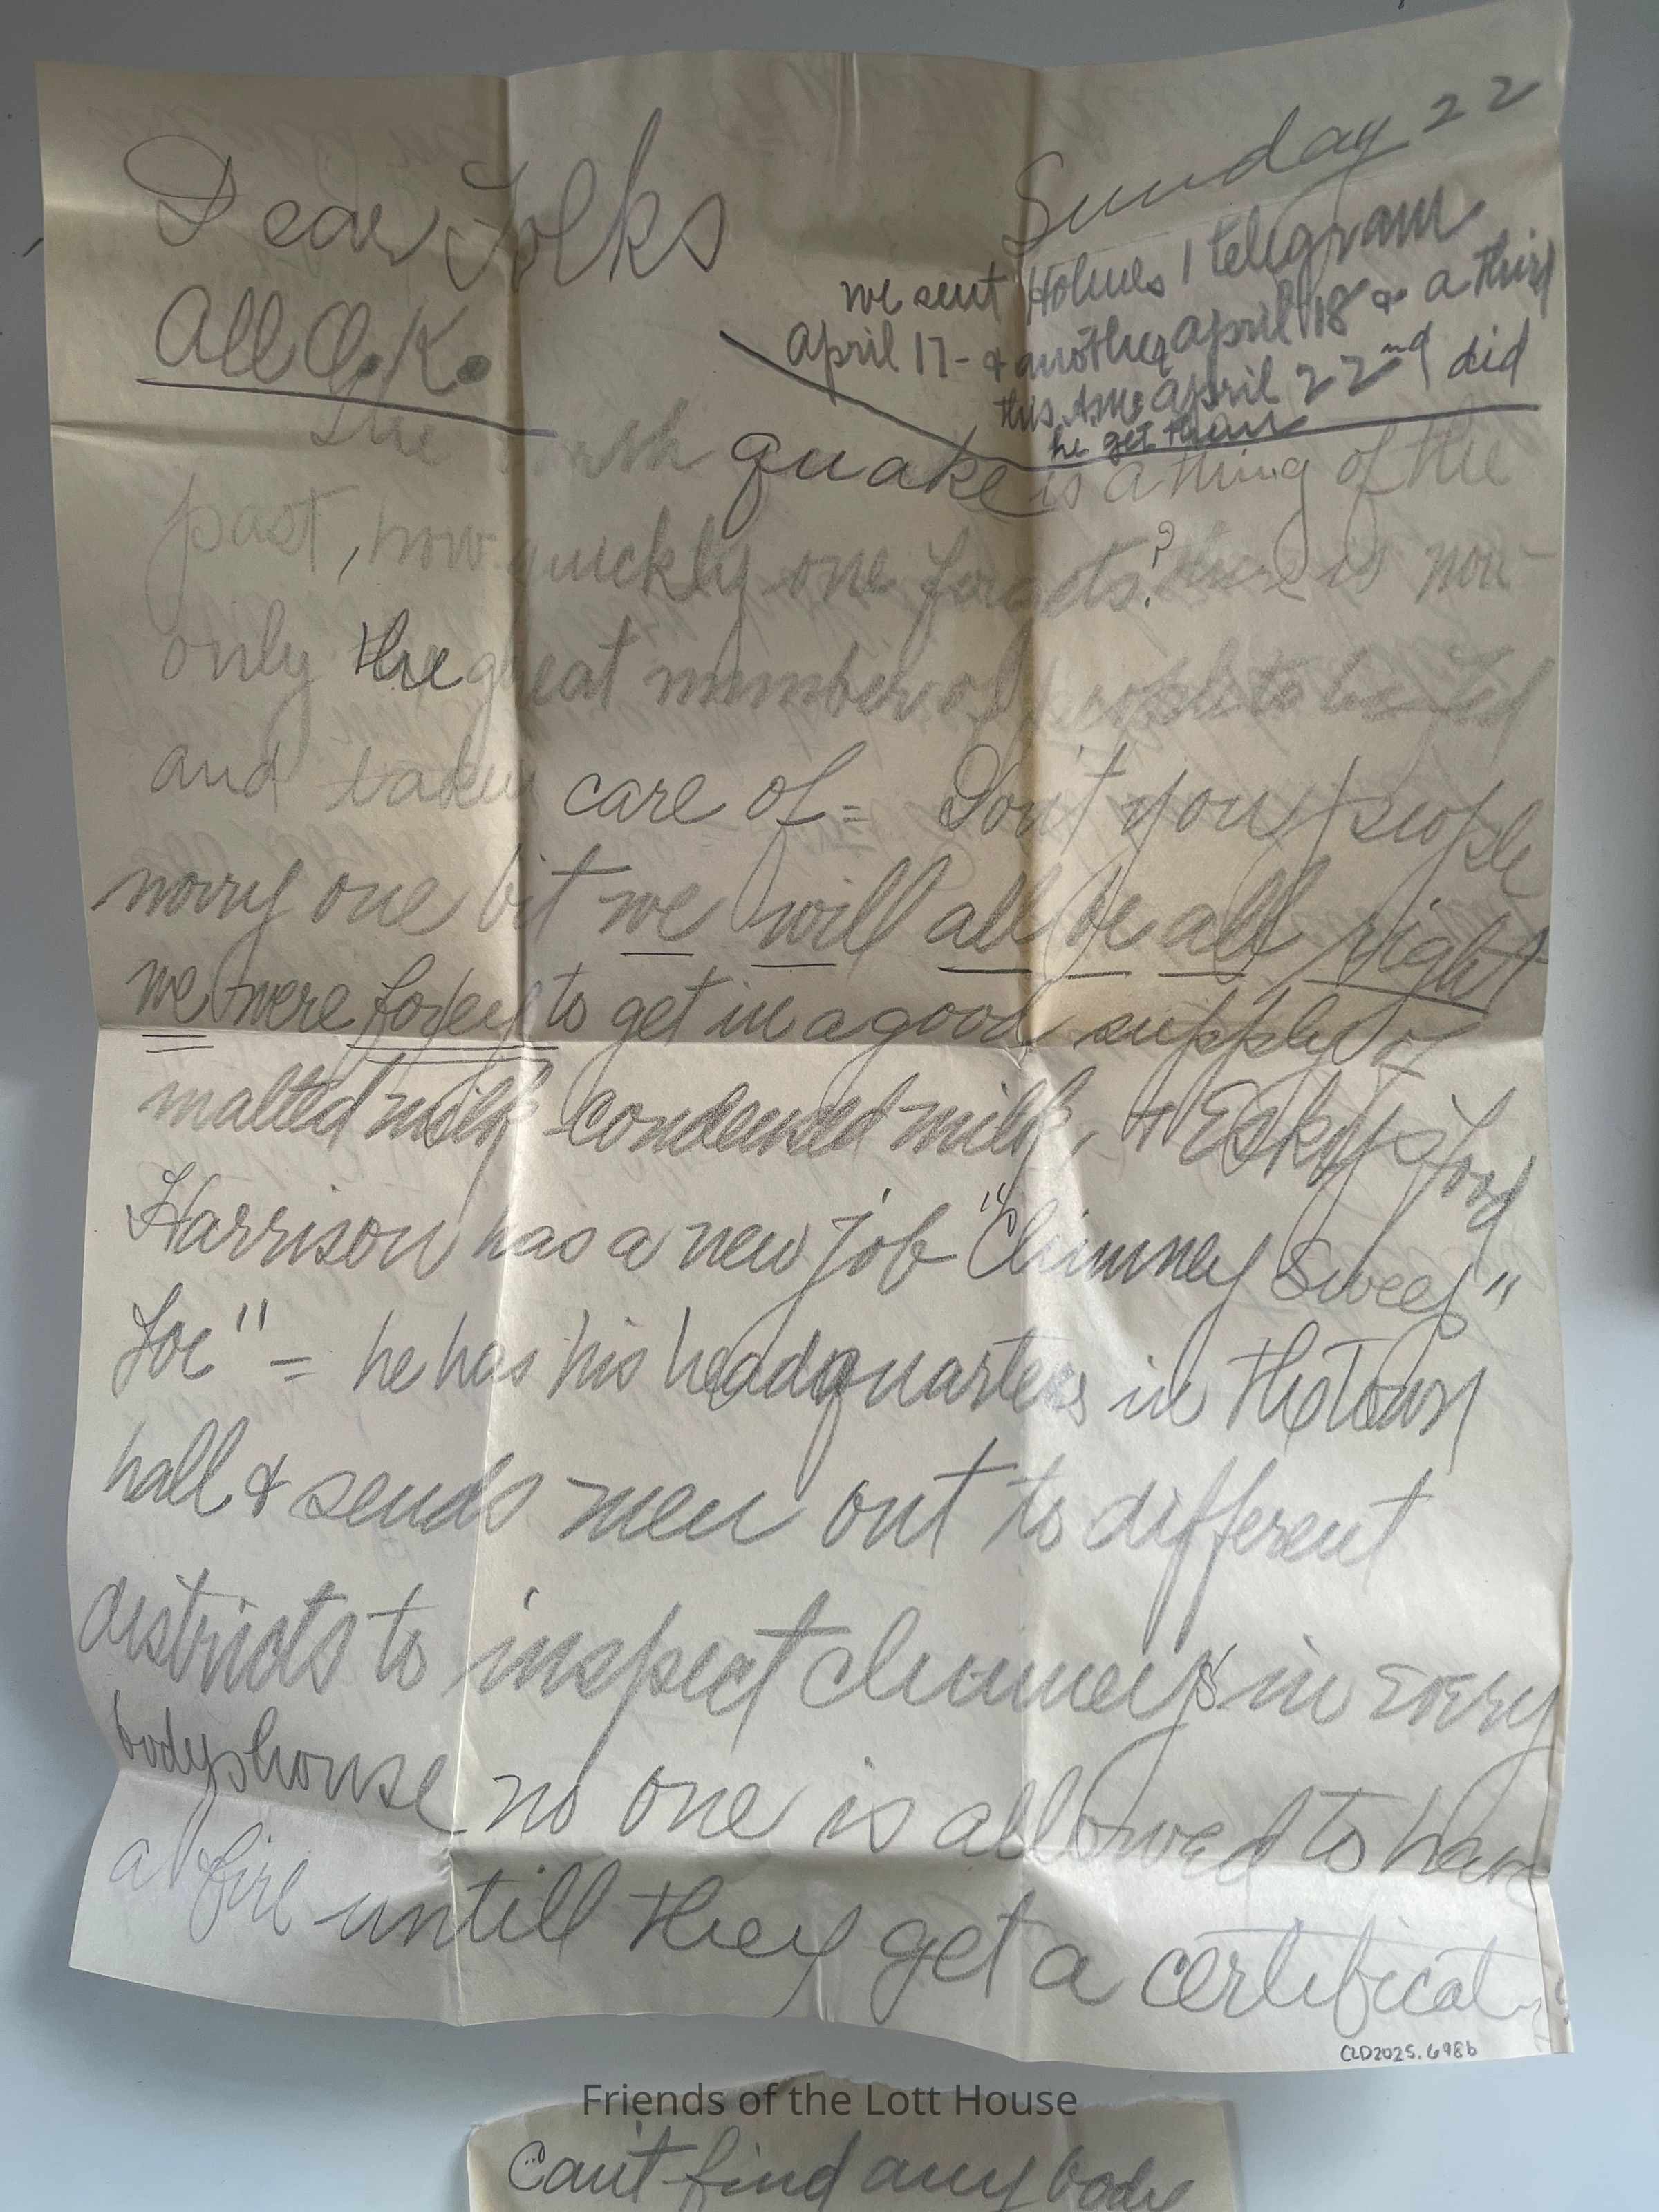 Sunday 22
Dear Folks
we sent Holmes 1 telegram
april 17 - & another april 18 & a third
this AM. april 22nd did
he get them
All O.K.
The earth quake is a thing of the
past, how quickly one forgets? there is now
only the great number of people to be fed
and taken care of = Dont you people
worry one bit we will all be all right
we were to get in a good supply of
malted milk condensed milk, + Eskays food
Harrison has a new job "Chimney Sweep"
Joe" = he has his headquarters in the Town
hall & sends men out to different
districts to inspect chimneys in every
bodys house no one is allowed to have
a fire untill they get a certificate
CLD2025.698b
Friends of the Lott House
Can't find any body